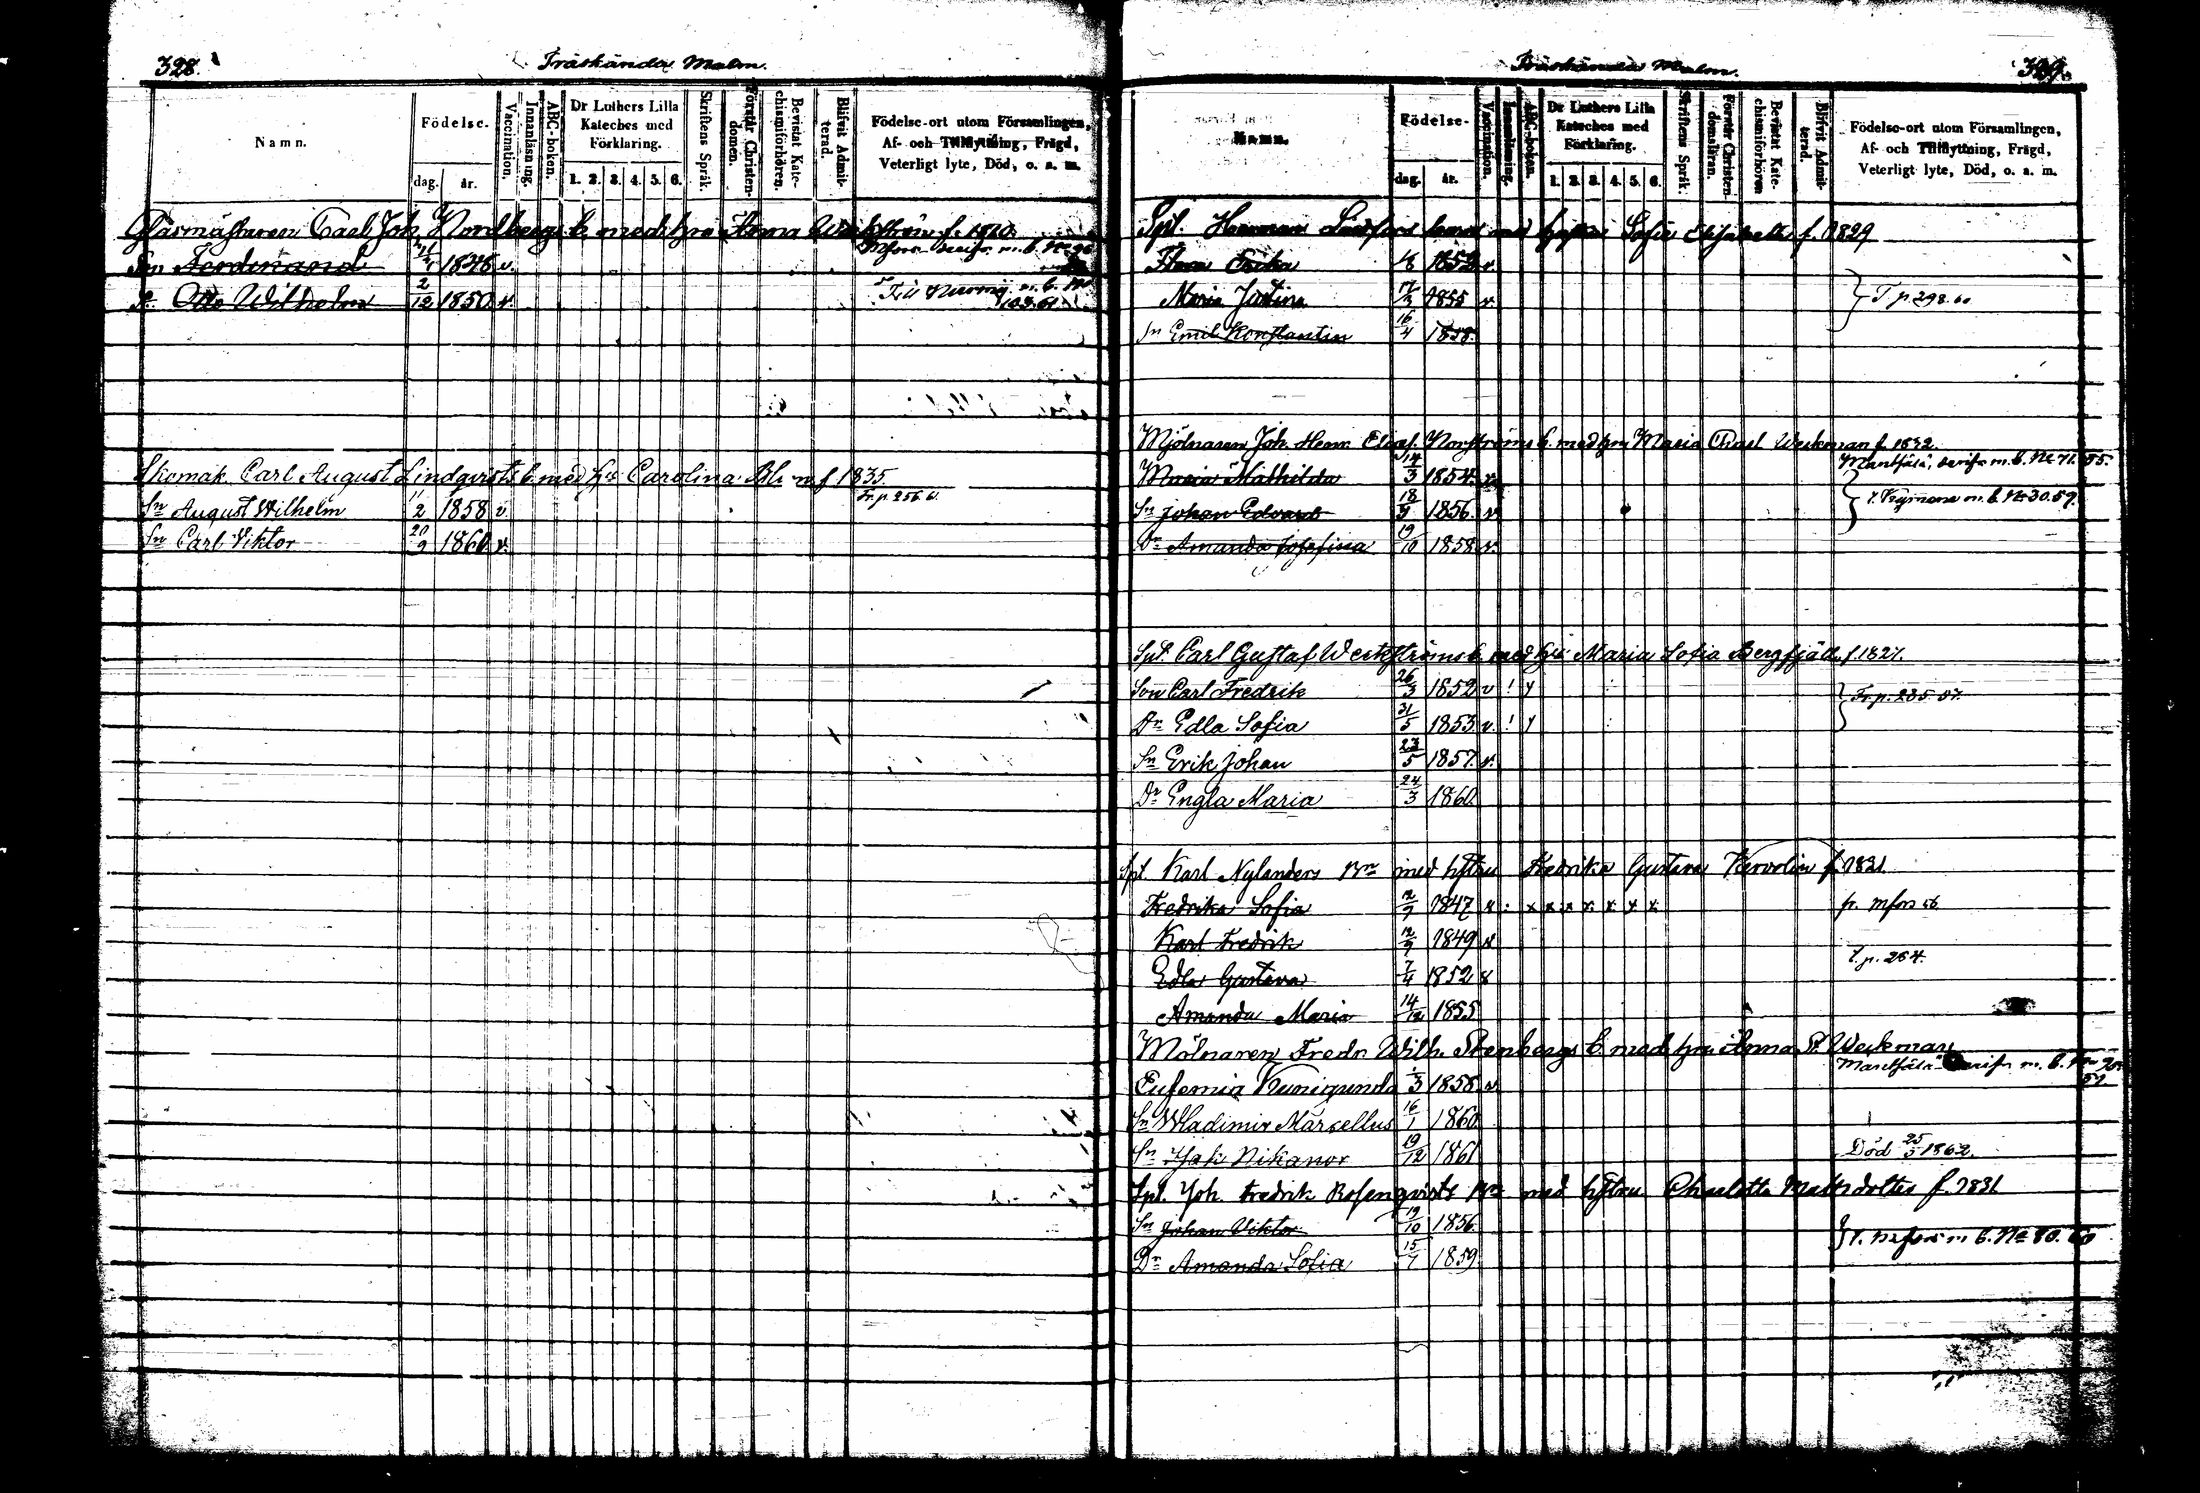 328.
Träskända Malm.
Namn.
Födelse-
dag. år.
Vaccination.
Innanläsning.
ABC-boken.
Dr Luthers Lilla Kateches med Förklaring.
1. 2. 3. 4. 5. 6.
Skriftens Språk.
Förstår Christendomen.
Bevistat Katechismiförhören.
Blifvit Admitterad.
Födelse-ort utom Församlingen, Af- och Tillflyttning, Frägd, Veterligt lyte, Död, o. a. m.
Glasmästaren Carl Joh. Nordbergs b. med hu Anna f. 1810
Sn Ferdinand 1848 v.
Otto Wilhelm 2/12 1850 v.
Skomak. Carl August Lindqvists b. med hu Carolina f 1835.
Fr. p. 256
Sn August Wilhelm 11/2 1858 v
Sn Carl Viktor 20/9 1860 v.
329.
Träskända Malm.
Namn.
Födelse-
dag. år.
Vaccination.
Innanläsning.
ABC-boken.
Dr Luthers Lilla Kateches med Förklaring.
1. 2. 3. 4. 5. 6.
Skriftens Språk.
Förstår Christendomsläran.
Bevistat Katechismiförhören
Blifvit Admitterad.
Födelse-ort utom Församlingen, Af- och Tillflyttning, Frägd, Veterligt lyte, Död, o. a. m.
Spl. Herman med Sofia Elisabeth f. 1829
Erika 1852 v.
Maria Justina 17/3 1855 v
T p. 298. 60
Sn Emil Konstantin 16/4 1858.
Mjölnaren Joh. Henr. Norströms b. med hu Maria Weckman f. 1832.
Maria Mathilda 14/3 1854. v.
Mäntsälä, m. b. No 71. 55.
Sn Johan Edvard 18/9 1856. v
t. m. b. No 30. 59.
Dr Amanda Josefina 19/10 1858 v.
Spl. Carl Gustaf Werkströms b. med hu Maria Sofia Bergfjäll. f. 1827.
Son Carl Fredrik 26/3 1852 v ! y
Fr. p. 235. 57.
Dr Edla Sofia 31/5 1853 v. ! y
Sn Erik Johan 23/5 1857. v.
Dr Engla Maria 24/3 1860.
Spl. Karl Nylanders Brn med hstru Fredrika Gustava f. 1821.
Fredrika Sofia 12/9 1847 x : x x x x x x x
fr. mfors 56
Karl Fredrik 12/9 1849 x
t. p. 264.
Edla Gustava 7/4 1852 x
Amanda Maria 14/12 1855
Mölnaren Fredr. Wilh. Stenbergs b med hu Anna Weckman
Mäntsälä m. b.
Eufemia Kunigunda 1/3 1858. v
Sn Wladimir Marsellus 16/1 1860
Sn Isak Nikanor 19/12 1861
Död 25/5 1862.
Spl. Joh. Fredrik Rosenqvists Brn med hstru Charlotta Mattsdotter f. 1831
Sn Johan Viktor 19/10 1856.
t. m b. No 80. 60
Dr Amanda Sofia 15/7 1859.